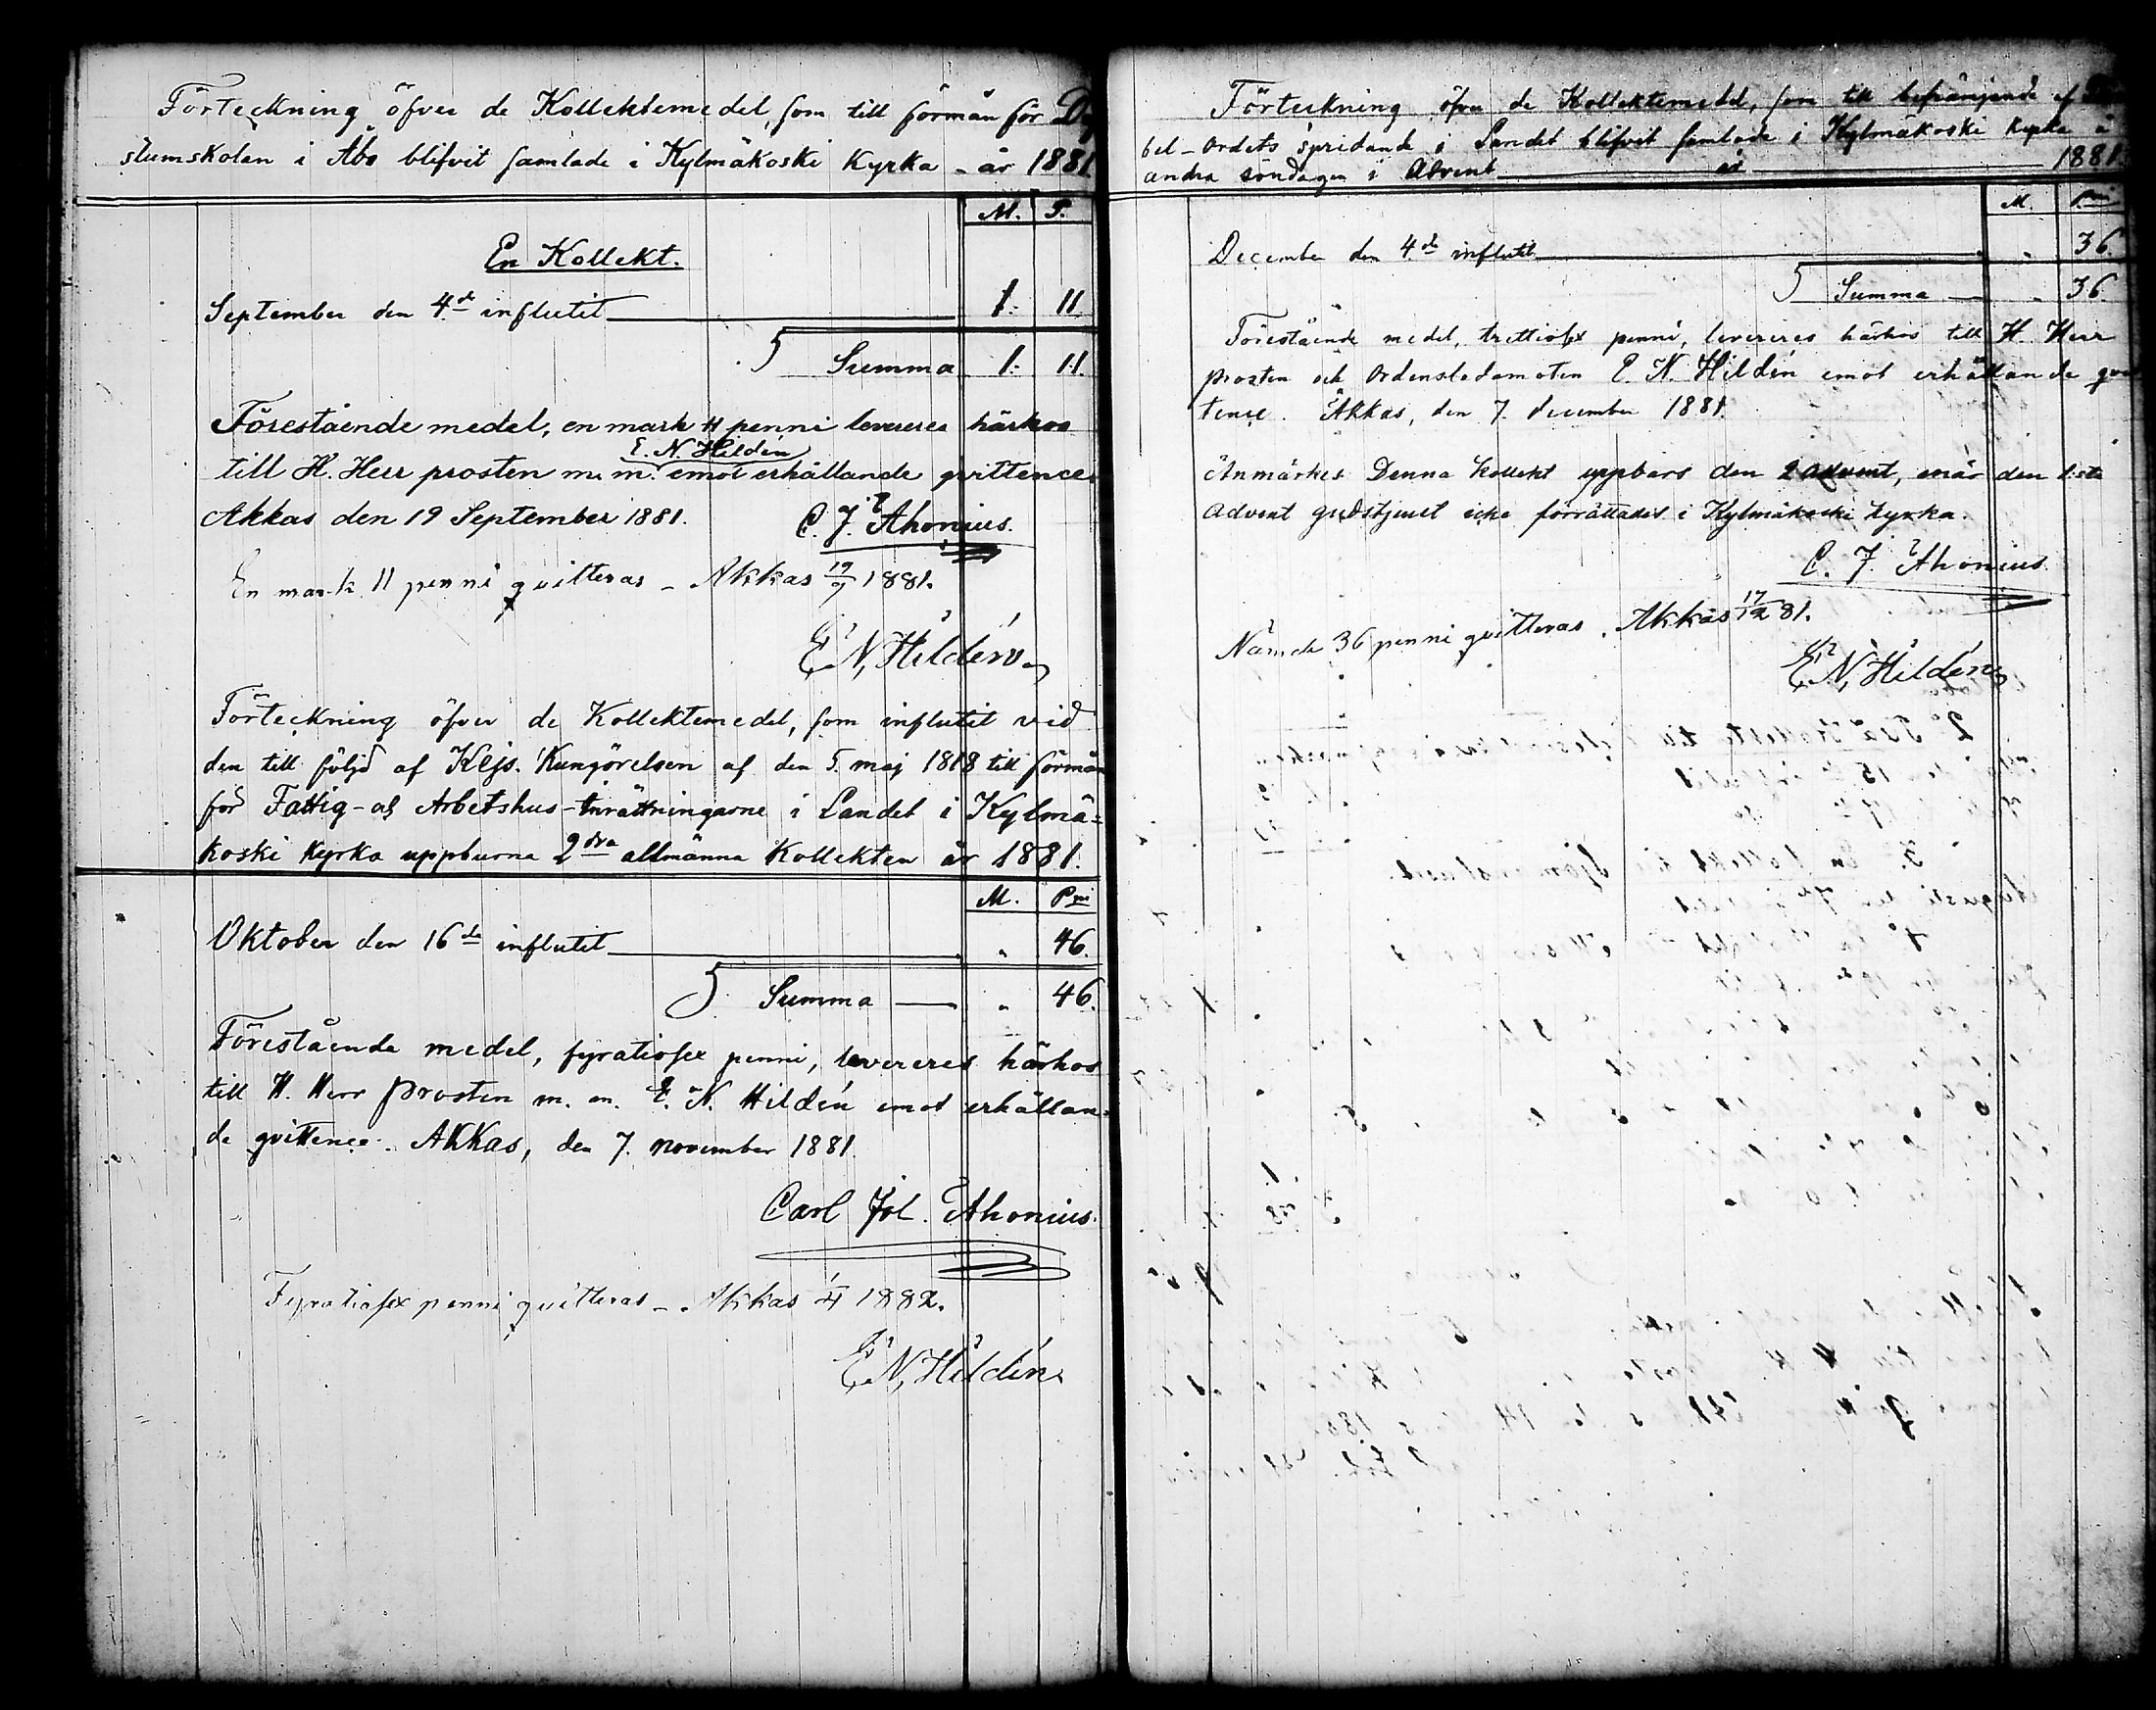 Förteckning öfver de Kollektemedel, som till förmån för Döf
stumskolan i Åbo blifvit samlade i Kylmäkoski Kyrka - år 1881
M. P.
En Kollekt.
September den 4de influtit 1. 11.
Summa 1. 11.
Förestående medel, en mark 11 penni levereres härhos
E. N. Hildén
till H. Herr prosten m. m. emot erhållande qvittence.
Akkas den 19 September 1881. C. J. Ahonius.
En mark 11 penni qvitteras - Akkas 19/9 1881.
E. N. Hildén
Förteckning öfver de Kollektemedel, som influtit vid
den till följd af Kejs. Kungörelsen af den 5. maj 1818 till förmån
för Fattig- och Arbetshus-inrättningarne i Landet i Kylmä-
koski Kyrka uppburna 2dra allmänna Kollekten år 1881.
M. Pni
Oktober den 16de influtit " 46.
Summa " 46.
Förestående medel, fyratiosex penni, levereres härhos
till H. Herr prosten m. m. E. N. Hildén emot erhållan-
de qvittence. Akkas, den 7. november 1881.
Carl Joh. Ahonius.
Fyratiosex penni qvitteras - Akkas 1882.
E. N. Hildén
Förteckning öfver de Kollektemedel, som till befrämjande af
bel-Ordets spridande i Landet blifvit samlade i Kylmäkoski Kyrka å
andra söndagen i Advent år 1881.
M. Pni
December den 4de influtit " 36.
Summa " 36.
Förestående medel, trettiosex penni, levereres härhos till H. Herr
prosten och Ordensledamoten E. N. Hildén emot erhållande qvit
tence. Akkas, den 7. december 1881.
Anmärkes Denna kollekt uppbars den 2 advent, enär den 1sta
Advent gudstjenst icke förrättades i Kylmäkoski kyrka.
C. J. Ahonius.
Nämde 36 penni qvitteras. Akkas 17/12 81.
E. N. Hildén